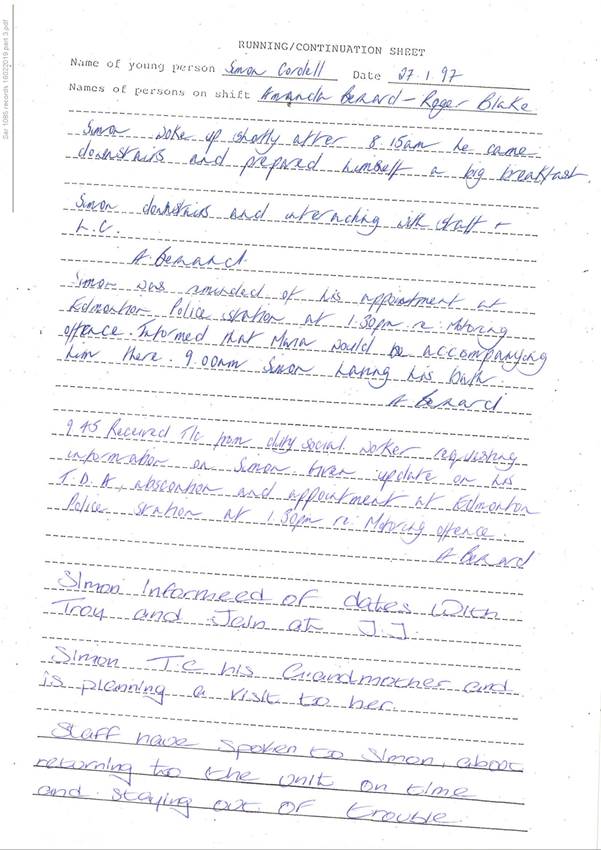 Sar 1085 records 16022019 part 3.pdf
RUNNING/CONTINUATION SHEET
Name of young person Simon Cordell Date 27.1.97
Names of persons on shift Amanda Benard - Roger Blake
Simon woke up shortly after 8.15am he came
downstairs and prepared himself a big breakfast.
Simon downstairs and interacting with staff +
L.C.
A. Benard.
Simon was reminded of his appointment at
Edmonton Police station at 1.30pm re: Motoring
offence. Informed that Maria would be accompanying
him there. 9.00am Simon having his bath.
A Benard
9.45 Received T/c from duty social worker requesting
information on Simon. Given update on his
T.D.A, abscontion and appointment at Edmonton
Police station at 1.30pm re: Motoring offence.
A Benard
Simon Informeed of dates With
Troy and Jein at J.J.
Simon T.C his Grandmother and
is planning a visit to her.
Staff have spoken to Simon, about
returning to the unit on time
and staying out of trouble